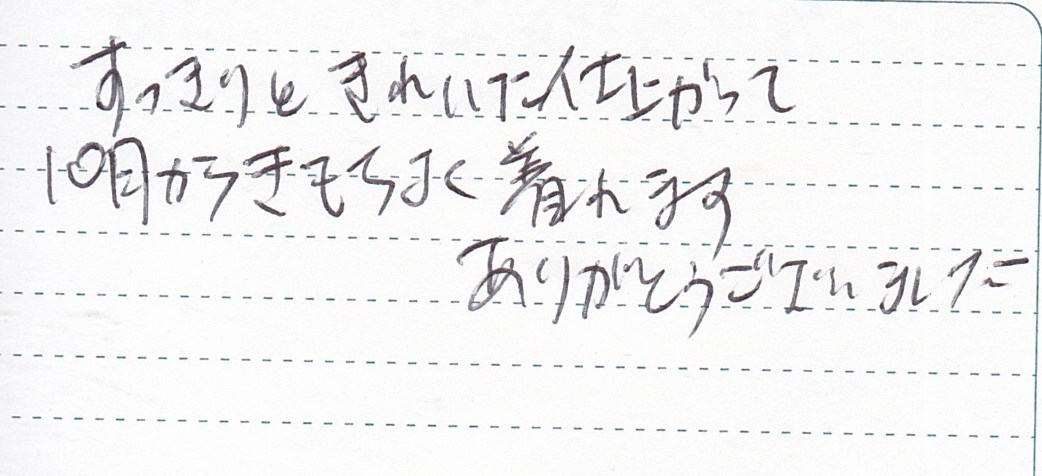 すっきりと きれいに仕上がって
10月からきもちよく 着れます
ありがとうございました